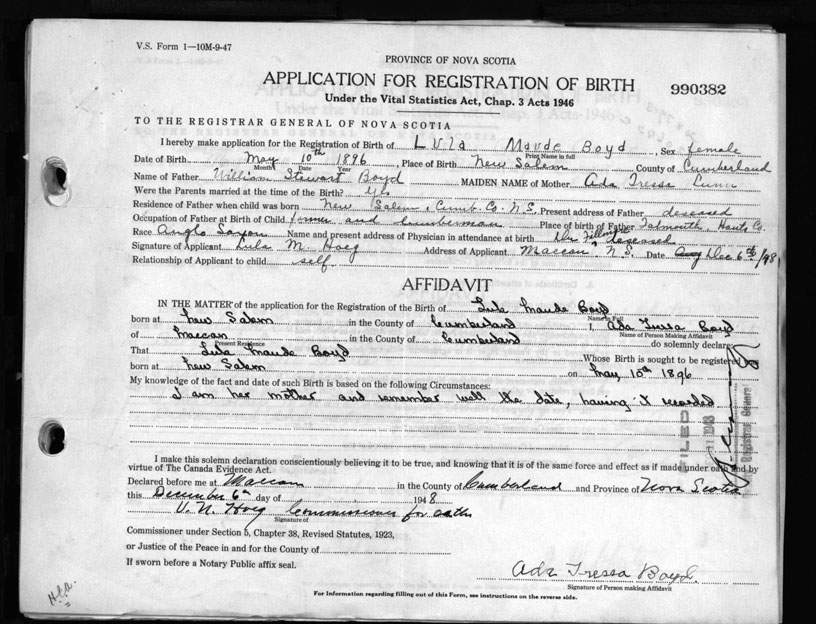 V.S. Form 1—10M-9-47
PROVINCE OF NOVA SCOTIA
APPLICATION FOR REGISTRATION OF BIRTH 990382
Under the Vital Statistics Act, Chap. 3 Acts 1946
TO THE REGISTRAR GENERAL OF NOVA SCOTIA
I hereby make application for the Registration of Birth of Lula Maude Boyd, Sex female
Print Name in full
Date of Birth May 10th 1896, Place of Birth New Salem County of Cumberland
Month Date Year
Name of Father William Stewart Boyd MAIDEN NAME of Mother Ada Tressa
Were the Parents married at the time of the Birth? yes
Residence of Father when child was born New Salem, Cumb. Co. N.S. Present address of Father deseased
Occupation of Father at Birth of Child farmer and lumberman Place of birth of Father Falmouth, Hants Co.
Race Anglo Saxon Name and present address of Physician in attendance at birth Dr. deseased
Signature of Applicant Lula M. Hoeg Address of Applicant Maccan, N.S. Date Dec 6th
Relationship of Applicant to child self
AFFIDAVIT
IN THE MATTER of the application for the Registration of the Birth of Lula Maude Boyd
Name in Full
born at New Salem in the County of Cumberland I, Ada Tressa Boyd
Name of Person Making Affidavit
of Maccan in the County of Cumberland do solemnly declare:
Present Residence
That Lula Maude Boyd Whose Birth is sought to be registered was
born at New Salem on May, 10th 1896
My knowledge of the fact and date of such Birth is based on the following Circumstances:
I am her mother and remember well the date, having it recorded
FILED
Registrar General
I make this solemn declaration conscientiously believing it to be true, and knowing that it is of the same force and effect as if made under oath and by
virtue of The Canada Evidence Act.
Declared before me at Maccan in the County of Cumberland and Province of Nova Scotia
this December 6th day of 1948
V. N. Hoeg Commissioner for oaths
Signature of
Commissioner under Section 5, Chapter 38, Revised Statutes, 1923,
or Justice of the Peace in and for the County of
If sworn before a Notary Public affix seal.
Ada Tressa Boyd.
Signature of Person making Affidavit
For Information regarding filling out of this Form, see instructions on the reverse side.